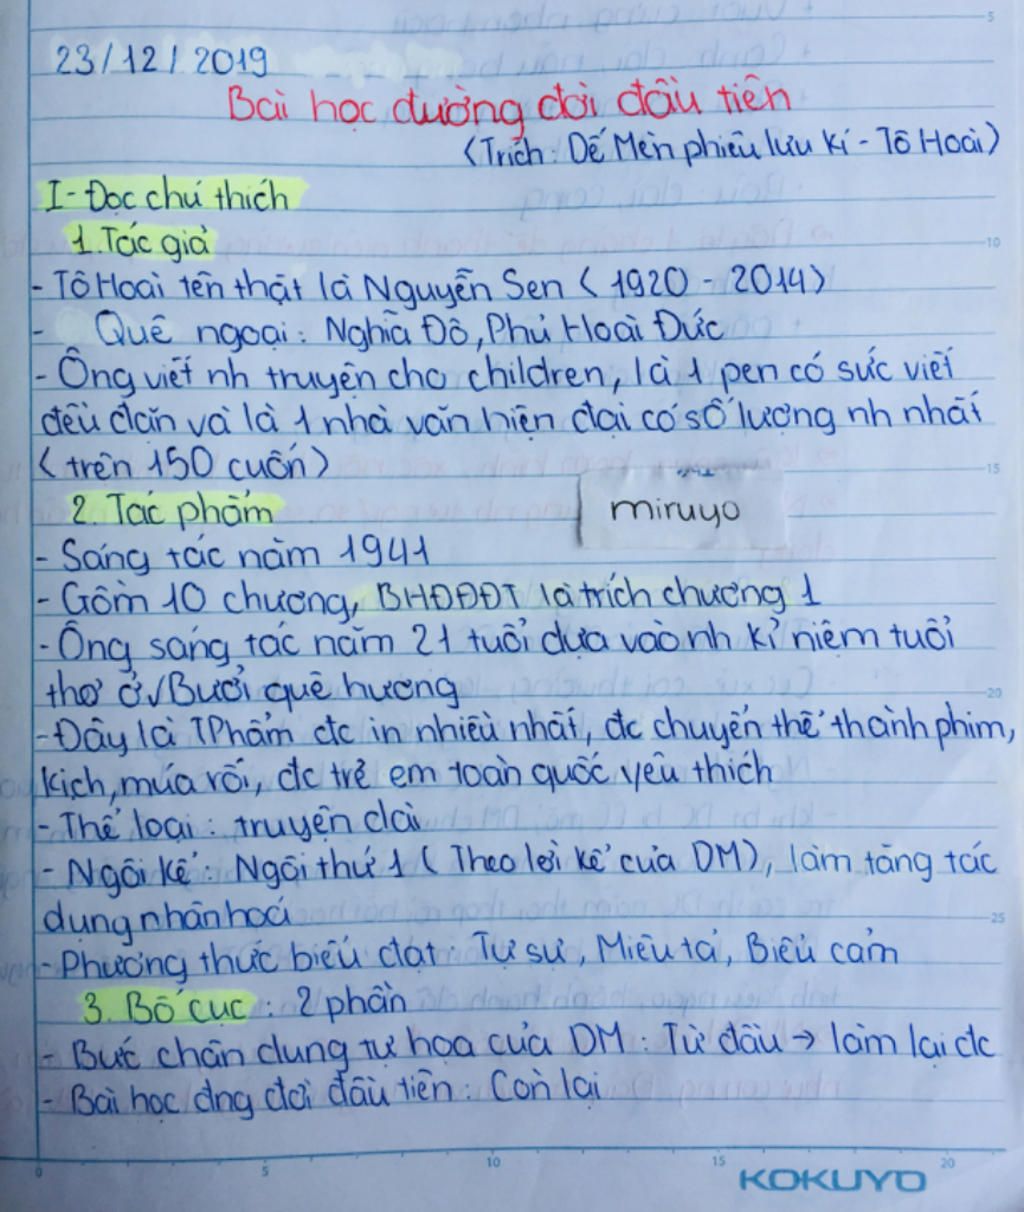 23/12/2019
Bài học đường đời đầu tiên
(Trích: Dế Mèn phiêu lưu kí - Tô Hoài)
I- Đọc chú thích
1. Tác giả
- Tô Hoài tên thật là Nguyễn Sen (1920 - 2014)
- Quê ngoại: Nghĩa Đô, Phủ Hoài Đức
- Ông viết nh truyện cho children, là 1 pen có sức viết
đều đặn và là 1 nhà văn hiện đại có số lượng nh nhất
(trên 150 cuốn)
2. Tác phẩm
miruyo
- Sáng tác năm 1941
- Gồm 10 chương, BHĐĐĐT là trích chương 1
- Ông sáng tác năm 21 tuổi dựa vào nh kỉ niệm tuổi
thơ ở √Bưởi quê hương
- Đây là TPhẩm đc in nhiều nhất, đc chuyển thể thành phim,
kịch, múa rối, đc trẻ em toàn quốc yêu thích
- Thể loại: truyện dài
- Ngôi kể: Ngôi thứ 1 (Theo lời kể của DM), làm tăng tác
dụng nhân hoá
- Phương thức biểu đạt: Tự sự, Miêu tả, Biểu cảm
3. Bố cục: 2 phần
- Bức chân dung tự họa của DM: Từ đầu → làm lại đc
- Bài học đng đời đầu tiên: Còn lại
KOKUYO